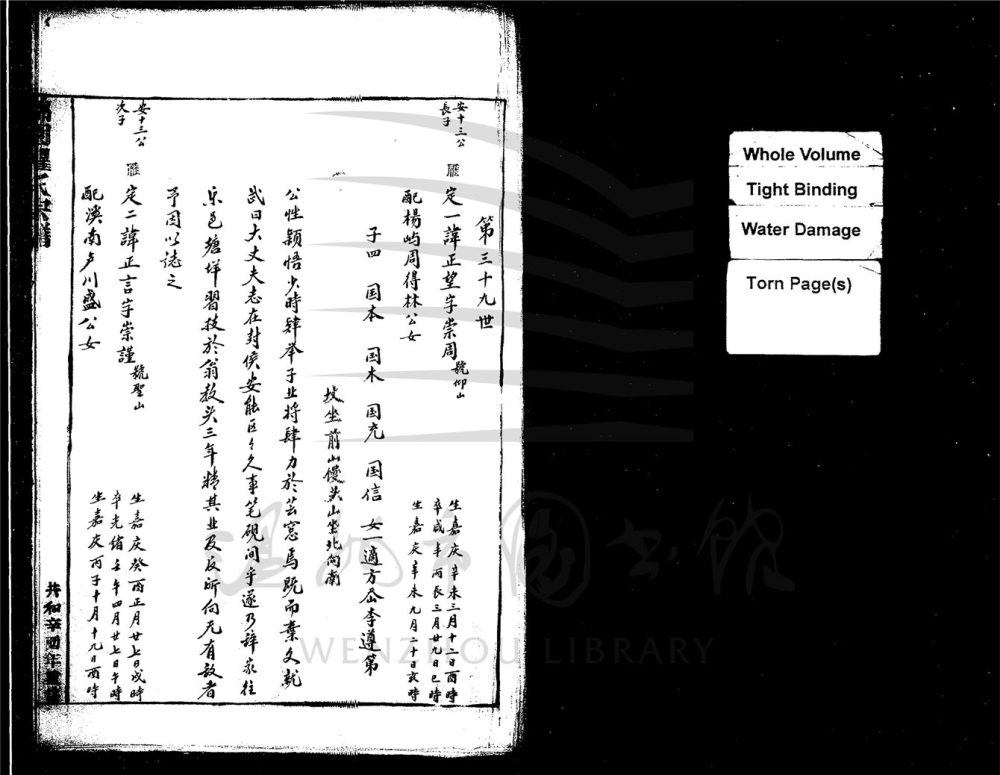 第三十九世
安十三公
長子
雁
定一諱正望字崇周
號仰山
生嘉庆辛未三月十二日酉時
卒咸丰丙辰三月廿九日巳時
配楊屿周得林公女
生嘉庆辛未九月二十日亥時
子四 国本 国木 国充 国信 女一適方岙李遵第
坟坐前山馒头山坐北向南
公性颖悟少時肆举子业将肆力於芸窓焉既而棄文就
武曰大丈夫志在封侯安能区々久事笔砚间乎遂乃辞家往
乐邑塘垟習技於翁教头三年精其业及反所向无有敌者
予因以誌之
安十三公
次子
雁
定二諱正言字崇謹
號聖山
生嘉庆癸酉正月廿七日戌時
卒光绪壬午四月廿七日午時
配溪南卢川盛公女
生嘉庆丙子十月十九日酉時
共和辛酉年
温州市圖书館
WENZHOU LIBRARY
Whole Volume
Tight Binding
Water Damage
Torn Page(s)